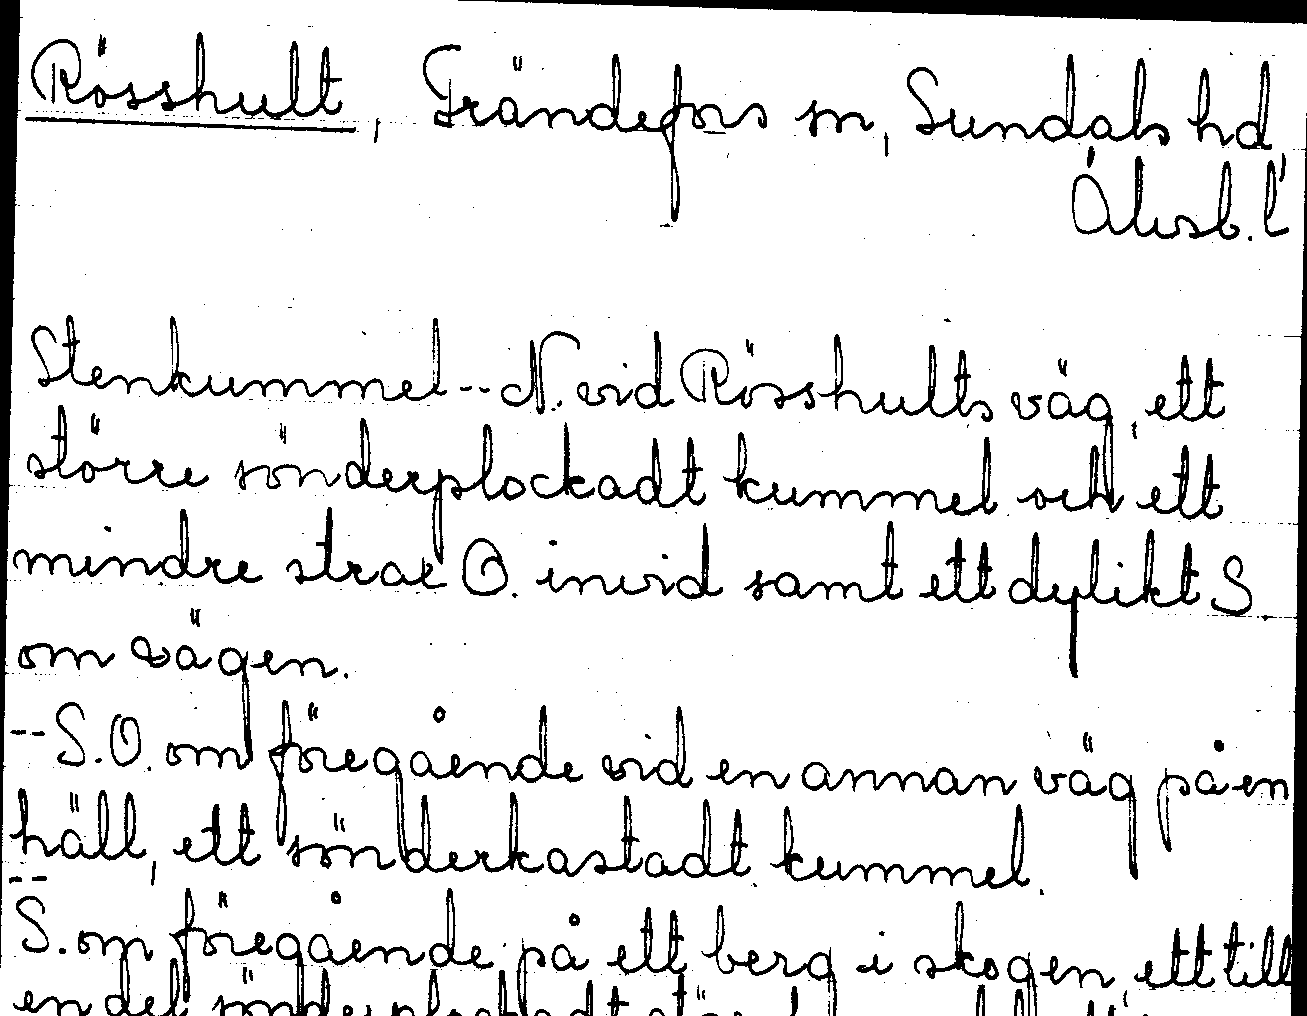 Rösshult, Frändefors sn, Sundals hd,
Älvsb. l
Stenkummel -- N. vid Rösshults väg, ett
större sönderplockadt kummel och ett
mindre strax O. invid samt ett dylikt S.
om vägen.
-- S.O. om föregående vid en annan väg på en
häll, ett sönderkastadt kummel.
--
S. om föregående på ett berg i skogen, ett till
en del sönderplockadt